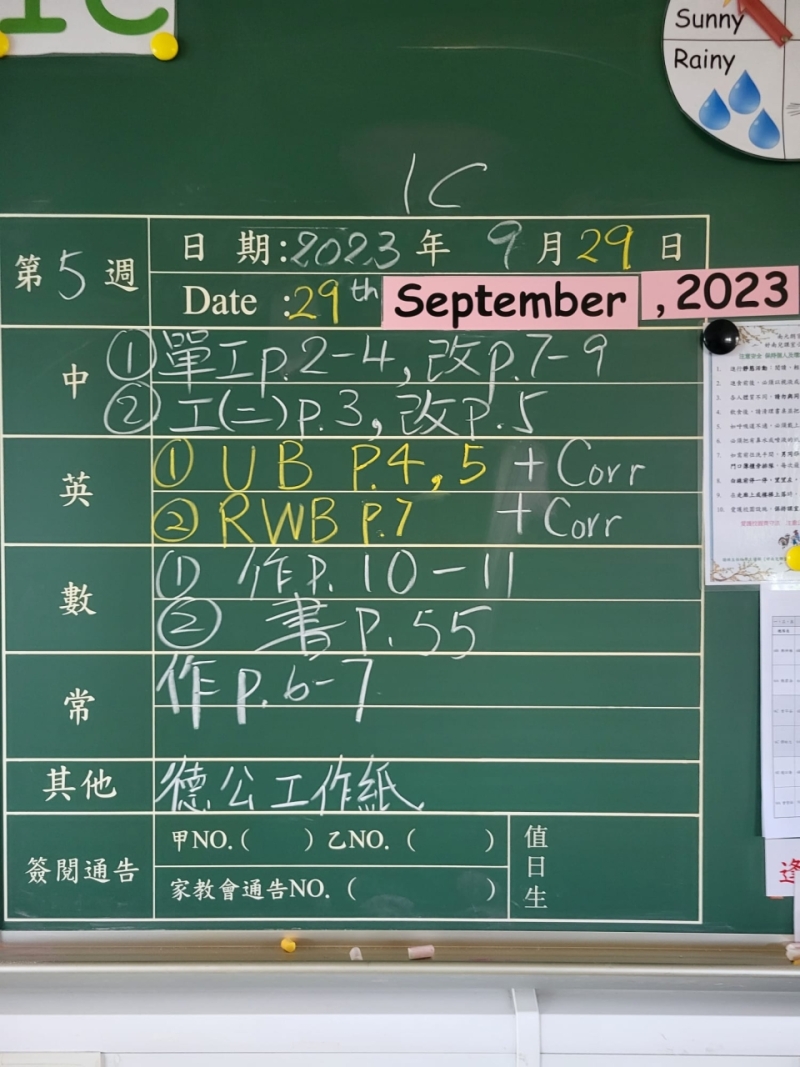 1C
Sunny
Rainy
1C
第5週
日期:2023年 9月29日
Date :29th September , 2023
中
①單工p.2-4,改p.7-9
②工(二)p.3,改p.5
英
① UB P.4,5 +Corr
② RWB P.7 +Corr
數
① 作P.10-11
② 書P.55
常
作p.6-7
其他
德公工作紙
簽閱通告
甲NO.( )乙NO.( )
家教會通告NO.( )
值日生
逢